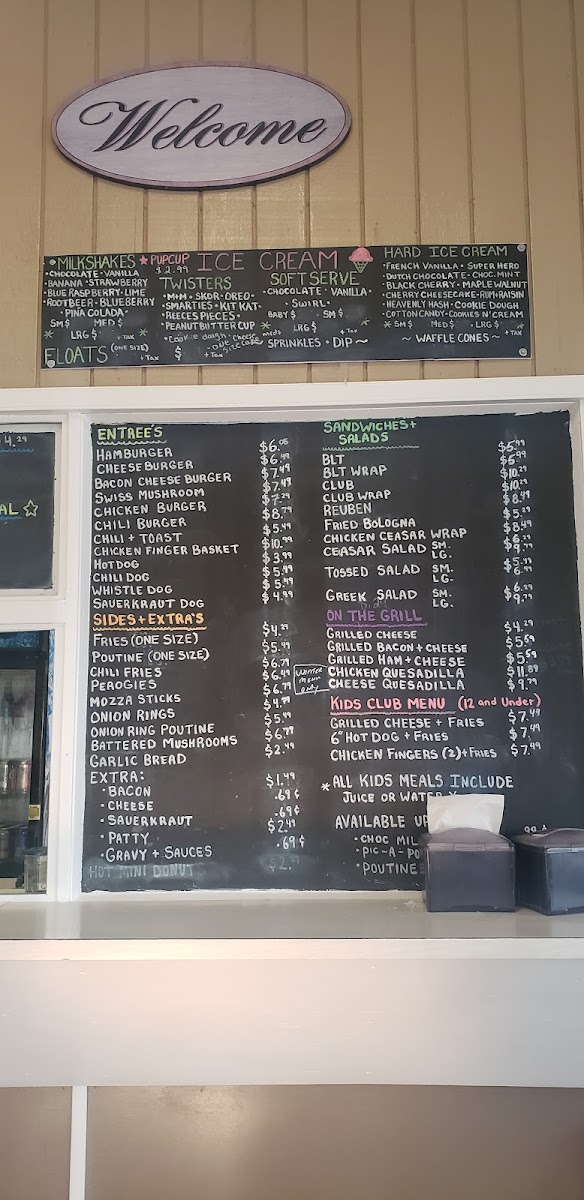 Welcome
MILKSHAKES
CHOCOLATE · VANILLA
BANANA · STRAWBERRY
BLUE RASPBERRY · LIME
ROOTBEER · BLUEBERRY
PINA COLADA
SM $ MED $
LRG $ + TAX
FLOATS (ONE SIZE) + TAX
PUPCUP
$2.99
ICE CREAM
TWISTERS
M+M · SKOR · OREO
SMARTIES · KIT KAT
REECES PIECES
PEANUTBUTTER CUP
Cookie dough · cheese
$ + TAX
SOFT SERVE
CHOCOLATE · VANILLA
SWIRL
BABY $ SM $
LRG $ + TAX
SPRINKLES · DIP ~
HARD ICE CREAM
FRENCH VANILLA · SUPER HERO
DUTCH CHOCOLATE · CHOC. MINT
BLACK CHERRY · MAPLE WALNUT
CHERRY CHEESECAKE · RUM+RAISIN
HEAVENLY HASH · COOKIE DOUGH
COTTON CANDY · COOKIES N' CREAM
SM $ MED $ LRG $ + TAX
~ WAFFLE CONES ~
ENTREE'S
HAMBURGER $6.05
CHEESEBURGER $6.49
BACON CHEESE BURGER $7.49
SWISS MUSHROOM $7.49
CHICKEN BURGER $7.29
CHILI BURGER $8.79
CHILI + TOAST $5.49
CHICKEN FINGER BASKET $10.99
HOTDOG $3.99
CHILI DOG $5.49
WHISTLE DOG $5.49
SAUERKRAUT DOG $4.99
SIDES + EXTRA'S
FRIES (ONE SIZE) $4.29
POUTINE (ONE SIZE) $5.49
CHILI FRIES $6.79
PEROGIES $6.49
MOZZA STICKS $6.79
ONION RINGS $4.79
ONION RING POUTINE $5.99
BATTERED MUSHROOMS $6.79
GARLIC BREAD $2.49
EXTRA:
· BACON $1.49
· CHEESE .69¢
· SAUERKRAUT .69¢
· PATTY $2.49
· GRAVY + SAUCES .69¢
HOT MINI DONUTS
WINTER MENU ONLY
SANDWICHES +
SALADS
BLT $5.99
BLT WRAP $6.99
CLUB $10.29
CLUB WRAP $10.29
REUBEN $8.49
FRIED BOLOGNA $5.29
CHICKEN CEASAR WRAP $8.49
CEASAR SALAD SM. $6.29
LG. $9.79
TOSSED SALAD SM. $5.79
LG. $6.99
GREEK SALAD SM. $6.99
LG. $9.79
ON THE GRILL
GRILLED CHEESE $4.29
GRILLED BACON + CHEESE $5.59
GRILLED HAM + CHEESE $5.59
CHICKEN QUESADILLA $11.89
CHEESE QUESADILLA $9.79
KIDS CLUB MENU (12 and Under)
GRILLED CHEESE + FRIES $7.49
6" HOT DOG + FRIES $7.49
CHICKEN FINGERS (2) + FRIES $7.49
* ALL KIDS MEALS INCLUDE
JUICE OR WATER
AVAILABLE UP
· CHOC MIL
PIC-A-PO
· POUTINE